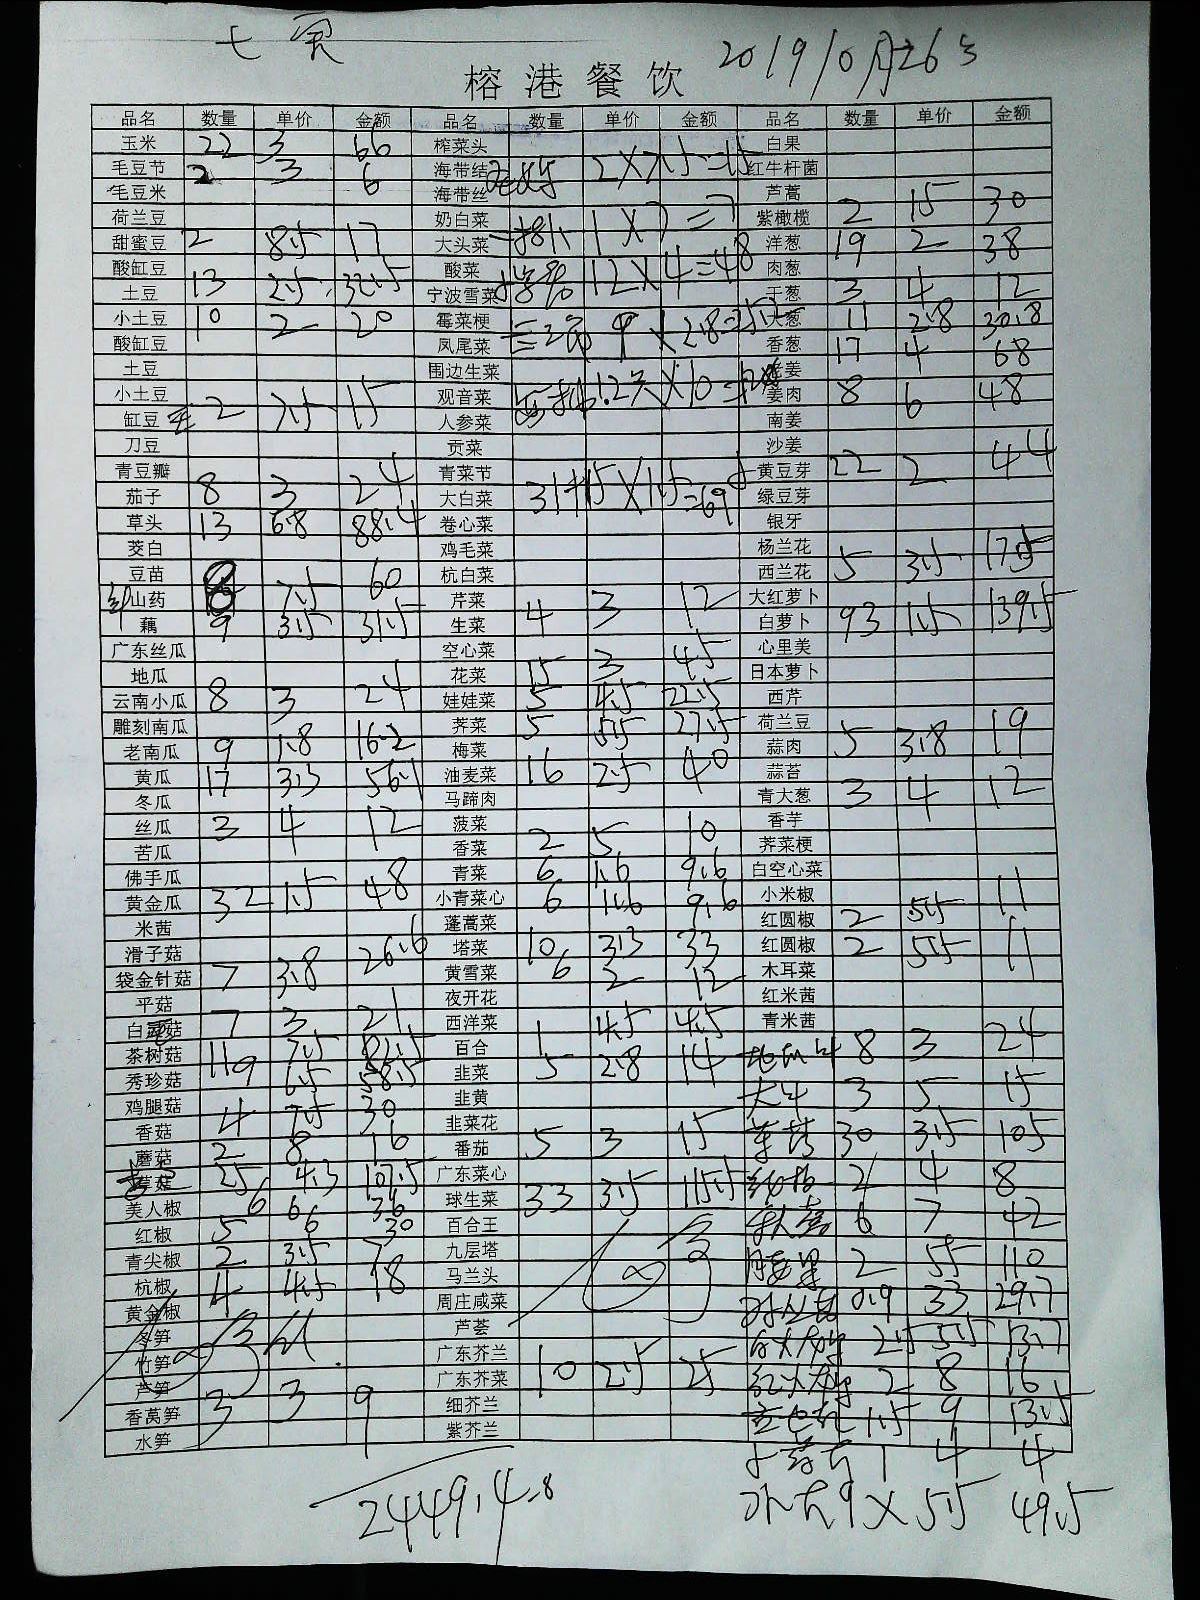 2019 10月26号
榕港餐饮
品名 数量 单价 金额 品名 数量 单价 金额 品名 数量 单价 金额
玉米 22 3 66 榨菜头 白果
毛豆节 2 3 6 海带结 2×7.5=15 红牛杆菌
毛豆米 海带丝 芦蒿
荷兰豆 奶白菜 紫橄榄 2 15 30
甜蜜豆 2 8.5 17 大头菜 1×7=7 洋葱 19 2 38
酸缸豆 酸菜 肉葱
土豆 13 2.5 32.5 宁波雪菜 12×4=48 干葱 3 4 12
小土豆 10 2 20 霉菜梗 大葱 11 2.8 30.8
酸缸豆 凤尾菜 9×2.8= 香葱 17 4 68
土豆 围边生菜 老姜
小土豆 观音菜 1.2×10= 姜肉 8 6 48
缸豆 2 7.5 15 人参菜 南姜
刀豆 贡菜 沙姜
青豆瓣 青菜节 黄豆芽 22 2 44
茄子 8 3 24 大白菜 31+15×1.5=69 绿豆芽
草头 13 6.8 88.4 卷心菜 银牙
茭白 鸡毛菜 杨兰花
豆苗 杭白菜 西兰花 5 3.5 17.5
山药 8 7.5 60 芹菜 大红萝卜
藕 9 3.5 31.5 生菜 4 3 12 白萝卜 93 1.5 139.5
广东丝瓜 空心菜 心里美
地瓜 花菜 15 3 45 日本萝卜
云南小瓜 8 3 24 娃娃菜 5 4.5 22.5 西芹
雕刻南瓜 荠菜 5 5.5 27.5 荷兰豆
老南瓜 9 1.8 16.2 梅菜 蒜肉 5 3.8 19
黄瓜 17 3.3 56.1 油麦菜 16 2.5 40 蒜苔
冬瓜 马蹄肉 青大葱 3 4 12
丝瓜 3 4 12 菠菜 香芋
苦瓜 香菜 2 5 10 荠菜梗
佛手瓜 青菜 6 1.6 9.6 白空心菜
黄金瓜 32 1.5 48 小青菜心 6 1.6 9.6 小米椒
米茜 蓬蒿菜 红圆椒 2 5.5 11
滑子菇 塔菜 10 3.3 33 红圆椒 2 5.5 11
袋金针菇 7 3.8 26.6 黄雪菜 6 2 12 木耳菜
平菇 夜开花 红米茜
白灵菇 7 3 21 西洋菜 1 4.5 4.5 青米茜
茶树菇 11 7.5 82.5 百合 8 3 24
秀珍菇 9 6.5 58.5 韭菜 5 2.8 14 3 5 15
鸡腿菇 韭黄
香菇 4 7.5 30 韭菜花
蘑菇 2 8 16 番茄 5 3 15 30 3.5 105
草菇 25 4.3 107.5 广东菜心 2 4 8
美人椒 6 6 36 球生菜 33 3.5 115.5 6 7 42
红椒 5 6 30 百合王
青尖椒 2 3.5 7 九层塔 腰果 2 55 110
杭椒 4 4.5 18 马兰头
黄金椒 周庄咸菜 0.9 33 29.7
冬笋 芦荟 2.5 5.5 13.7
竹笋 广东芥兰
芦笋 广东芥菜 10 2.5 25 2 8 16
香莴笋 3 3 9 细芥兰 1.5 9 13.5
水笋 紫芥兰
1 4 4
2449.4 9×5.5 49.5